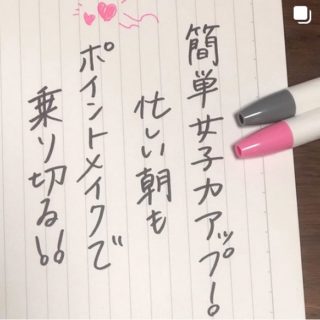 簡単女子力アップ！
忙しい朝も
ポイントメイクで
乗り切る！！